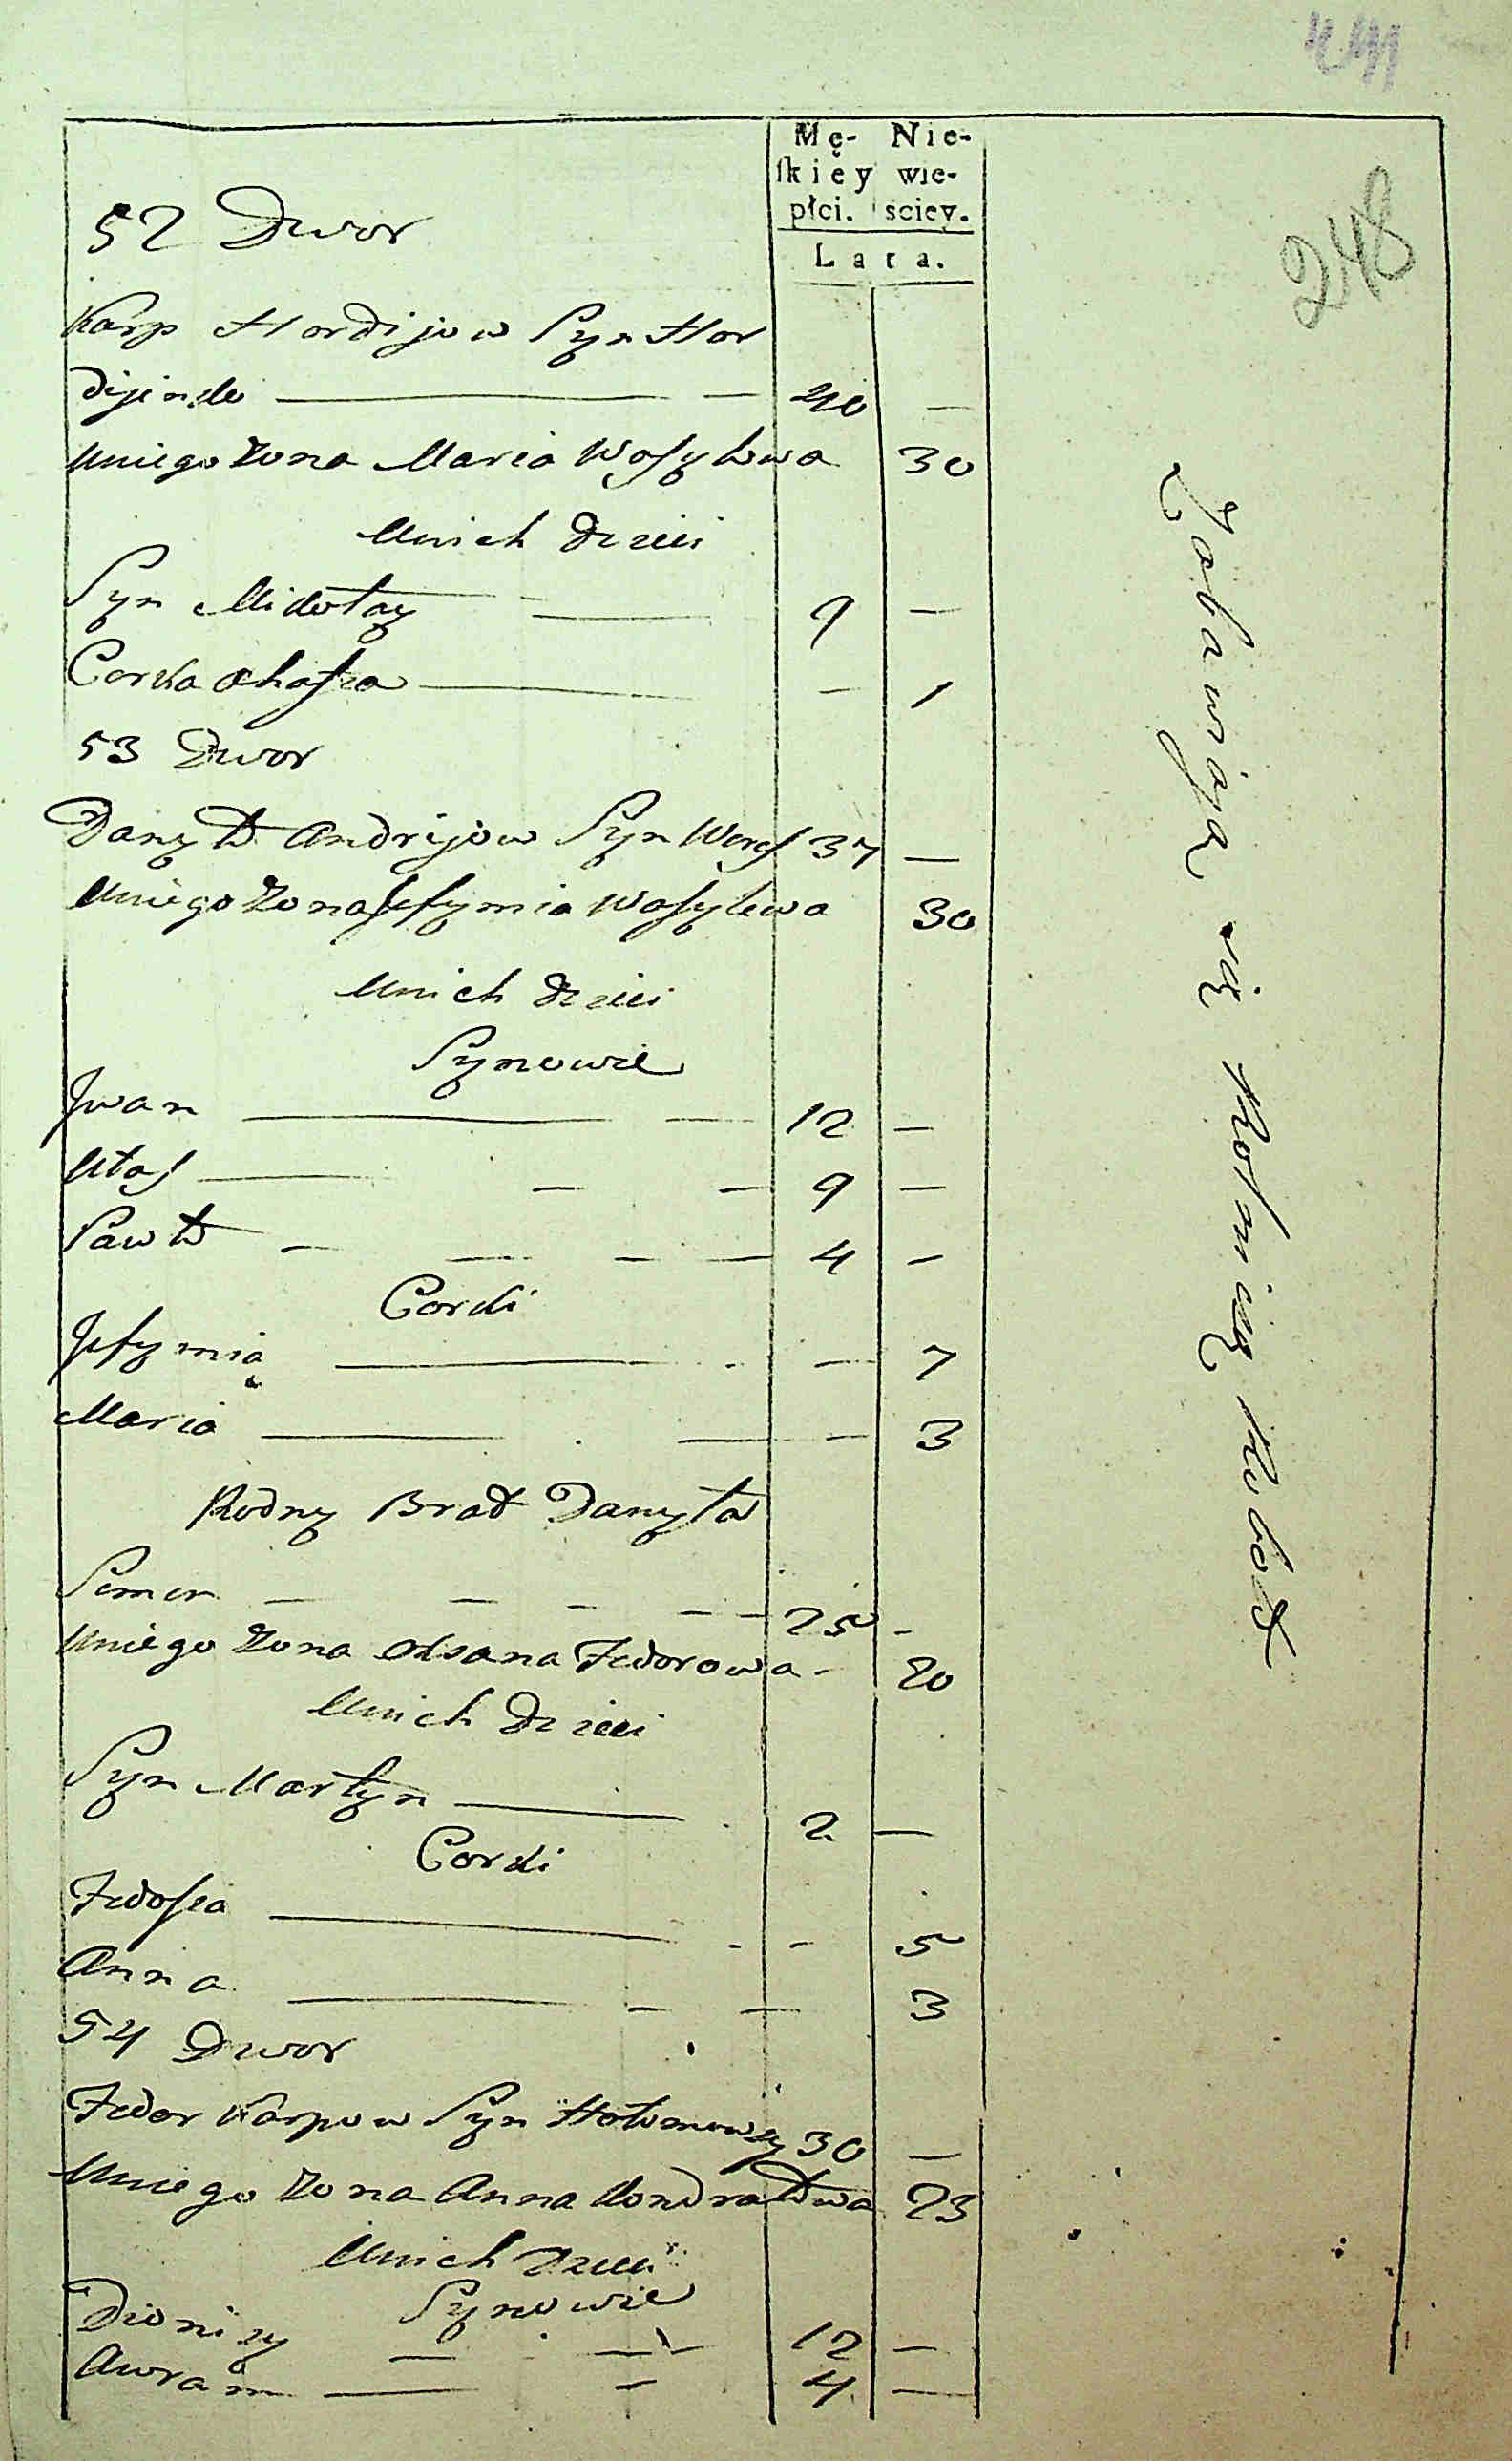 248
Mę- Nie-
skiey wie-
płci. sciey.
Lata.
52 Dwor
Karp Hordijow Syn Hor
dijenko — 40 —
Uniego Zona Maria Wasylowa 30
Unich Dzieci
Syn Mikołay — 9 —
Corka Ahafia — — 1
53 Dwor
Danyło Andrijow Syn 37 —
Uniego Zona Jefymia Wasylewa 30
Unich Dzieci
Synowie
Jwan — 12 —
Ułas — 9 —
Pawło — 4 —
Corki
Jefymia — — 7
Maria — — 3
Rodny Brat Danyła
Semen — 25 —
Uniego Zona Oksana Fedorowa - 20
Unich Dzieci
Syn Martyn — 2 —
Corki
Fedosia — - 5
Anna — — 3
54 Dwor
Fedor Karpow Syn 30 —
Uniego Zona Anna Kondratowa 23
Unich Dzieci
Synowie
Dionizy — 12 —
Awram — 4 —
Zabawiaią się Rolniczą Robotą